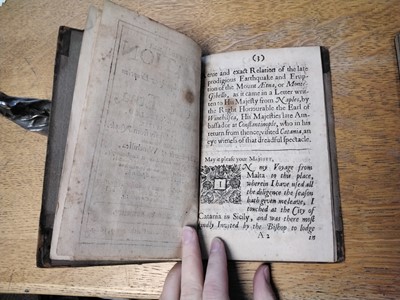 (3)
true and exact Relation of the late
prodigious Earthquake and Erup-
tion of the Mount Ætna, or Monte-
Gibello, as it came in a Letter writ-
ten to His Majesty from Naples, by
the Right Honourable the Earl of
Winchilsea, His Majesties late Am-
bassador at Constantinople, who in his
return from thence, visited Catania, an
eye witness of that dreadful spectacle.
May it please your MAJESTY,
IN my Voyage from
Malta to this place,
wherein I have used all
the diligence the season
hath given me leave, I
touched at the City of
Catania in Sicily, and was there most
kindly Invited by the Bishop to lodge
A 2 in